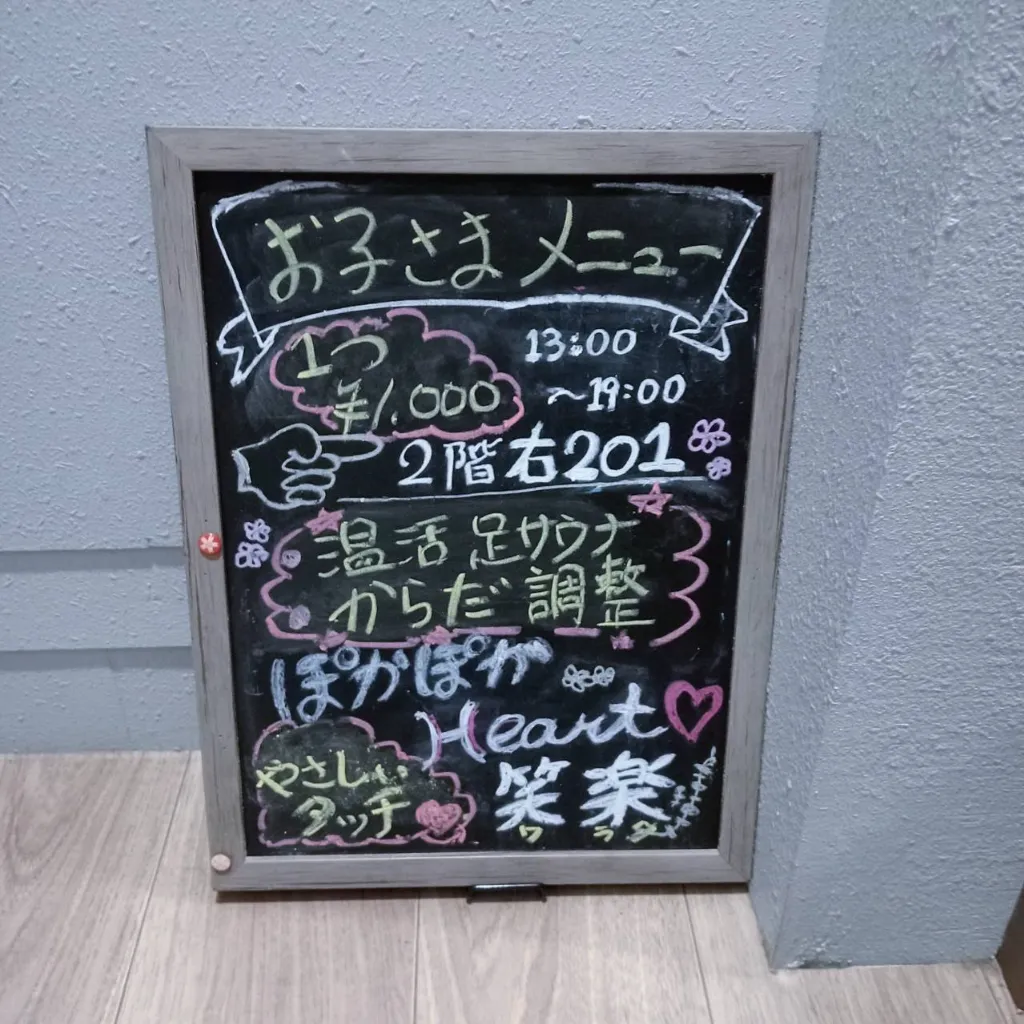 お子さまメニュー
1つ
¥1,000
13:00
～19:00
2階右201
温活 足サウナ
からだ調整
ぽかぽか
Heart
やさしい
タッチ
笑楽
ワラク